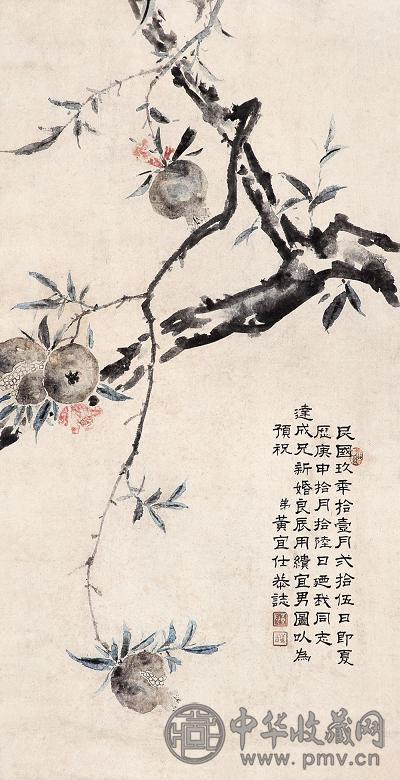 民國玖年拾壹月弍拾伍日即夏
歷庚申拾月拾陸日廼我同志
達成兄新婚良辰用繢宜男圖以為
預祝 弟黃宜仕恭誌
中华收藏网
www.pmv.cn